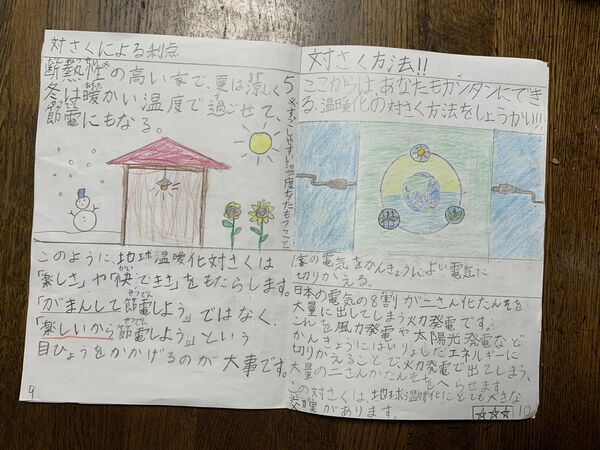 対さくによる利点
断熱性※の高い家で、夏は涼しく
冬は暖かい温度で過ごせて、
節電にもなる。
※すごしやすい温度をたもつこと
このように、地球温暖化対さくは
「楽しさ」や「快てきさ」をもたらします。
「がまんして節電しよう。」ではなく、
「楽しいから節電しよう。」という
目ひょうをかかげるのが大事です。
9
対さく方法!!
ここからは、あなたもカンタンにでき
る温暖化の対さく方法をしょうかい!!
家の電気をかんきょうによい電気に
切りかえる。
日本の電気の8割が二さん化たんそを
大量に出してしまう火力発電です。
これを風力発電や太陽光発電など
かんきょうにはいりょしたエネルギーに
切りかえることで火力発電で出てしまう、
大量の二さんかたんそをへらせます。
この対さくは、地球温暖化にとても大きな
効果があります。
☆☆☆
10